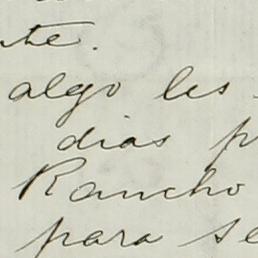 nte.
algo les
dias p
Rancho
para se